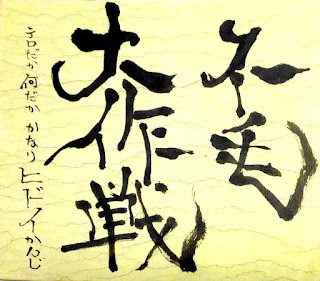 不毛
大作戦
エロだか何だか かなり ヒドイかんじ